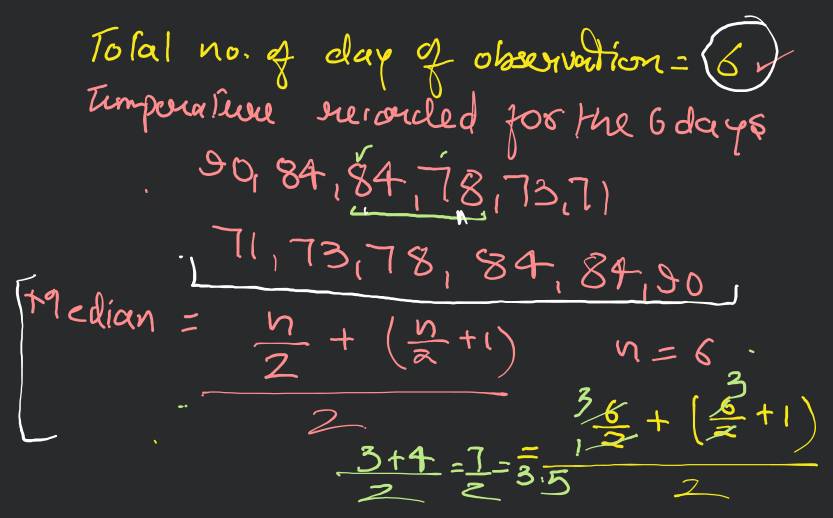 Total no. of day of observation = 6 ✓
Temperature recorded for the 6 days
90, 84, 84, 78, 73, 71
71, 73, 78, 84, 84, 90
Median = (n/2 + (n/2 + 1)) / 2
n = 6
= (6/2 + (6/2 + 1)) / 2
3 1 3
(3+4)/2 = 7/2 = 3.5